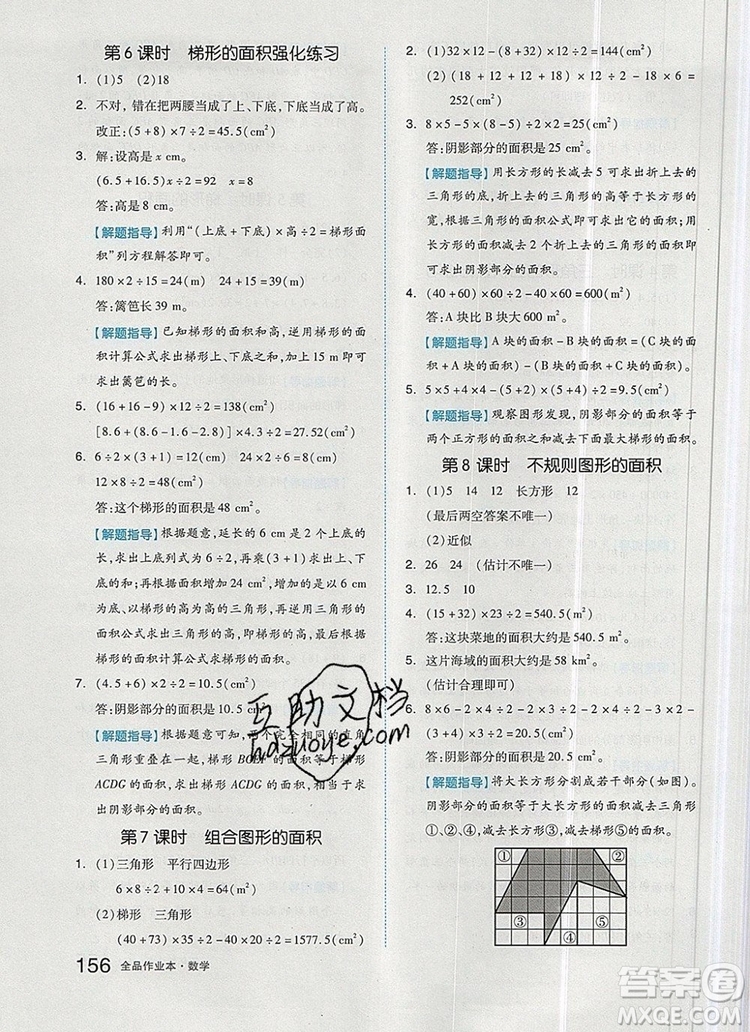 第6课时 梯形的面积强化练习
1. (1)5 (2)18
2. 不对,错在把两腰当成了上、下底,下底当成了高。
改正:(5+8)×7÷2=45.5(cm²)
3. 解:设高是x cm。
(6.5+16.5)x÷2=92 x=8
答:高是8 cm。
【解题指导】利用“(上底+下底)×高÷2=梯形面
积”列方程解答即可。
4. 180×2÷15=24(m) 24+15=39(m)
答:篱笆长39 m。
【解题指导】已知梯形的面积和高,逆用梯形的面
积计算公式求出梯形上、下底之和,进一步即可
求出篱笆的长。
5. (16+16-9)×12÷2=138(cm²)
[8.6+(8.6-1.6-2.8)]×4.3÷2=27.52(cm²)
6. 6÷(3-1)×(3+1)=12(cm) 24×2÷6=8(cm)
12×8÷2=48(cm²)
答:这个梯形的面积是48 cm²。
【解题指导】根据题意,延长的6 cm是上底的2
倍,求出上底列式为6÷2,再乘(3+1)求出上、下
底的和;再根据面积增加24 cm²,增加的是以6 cm
为底,梯形的高为高的三角形,逆用三角形的面积
公式求出三角形的高,即梯形的高,再根据梯形的
面积公式求出梯形的面积。
7. (6.5+6.5-6)×3÷2=10.5(cm²)
答:阴影部分的面积是10.5 cm²。
【解题指导】
三角形重叠在一起,梯形
ACDG的面积,求出梯形ACDG的面积,也就求出
阴影部分的面积。
第7课时 组合图形的面积
1. (1)三角形 平行四边形
6×8÷2+10×4=64(cm²)
(2)梯形 三角形
(40+73)×15÷2+73×20÷2=1577.5(cm²)
156 全品作业本·数学
2. (1)32×12-(8+32)×10÷2=184(cm²)
(2)(18+18-2-2)×(18-2)÷2-2×2=
252(cm²)
3. 8×5-5×(8-5)÷2×2=25(cm²)
答:阴影部分的面积是25 cm²。
【解题指导】用长方形的长减去5可求出折上去的
三角形的底,折上去的三角形的高等于长方形的
宽,根据三角形的面积公式可求出三角形的面积,
用长方形的面积减去2个折上去的三角形的面积
求出阴影部分的面积。
4. (40+60)×60÷2-(40+40)×60÷2=600(m²)
答:A块比B块大600 m²。
【解题指导】A块的面积-B块的面积=A块与空
白部分的面积之和-B块与空白部分的面积之和。
5. 5×5+4×4-(5+4)×(5+2)÷2=9.5(cm²)
【解题指导】观察图形发现,阴影部分的面积等于
两个正方形的面积之和减去下面最大梯形的面积。
第8课时 不规则图形的面积
1. (1)5 14 12 长方形 12
(最后两空答案不唯一)
(2)近似
2. 26 24 (估计不唯一)
3. 12.5 10
4. (15+32)×23÷2=540.5(m²)
答:这块菜地的面积大约是540.5 m²。
5. 这片海域的面积大约是58 km²。
(估计合理即可)
6. 8×6-2×4÷2-6×2÷2-4×2-2×4÷2-
(4+4)×2÷2=18(cm²)
答:阴影部分的面积是18 cm²。
【解题指导】将大长方形分割成若干部分(如图)。
①、②、④,减去长方形③,减去梯形⑤的面积。
①
②
③
④
⑤
互助文档
hdzuoye.com
答案圈
MXQE.COM